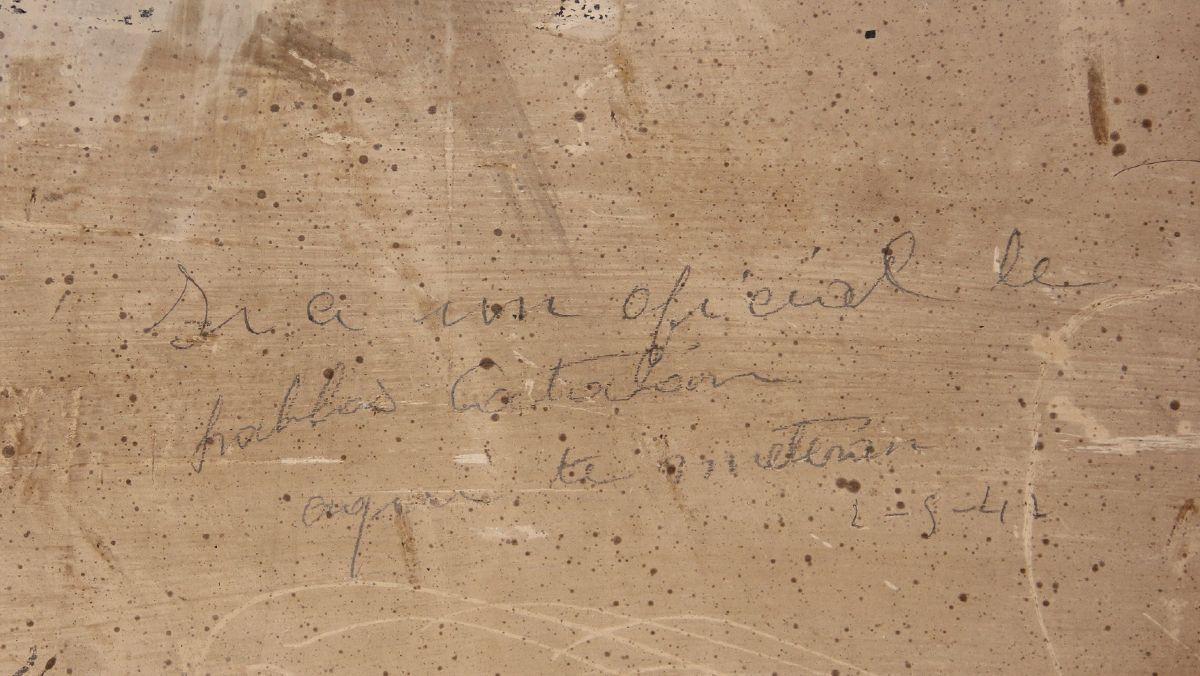 Si a un oficial le
hablas Catalan
aqui te meteran
2-9-42